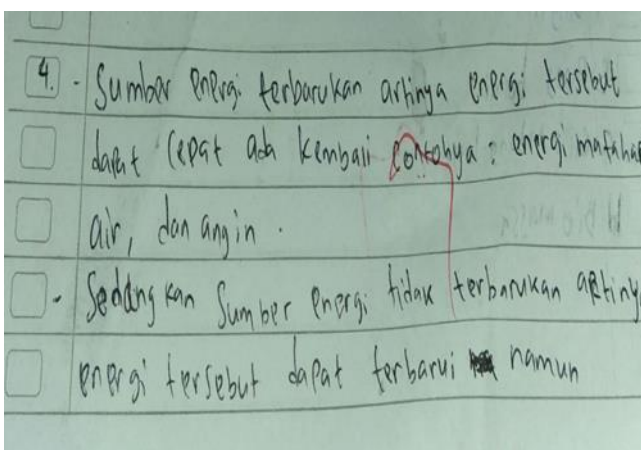 4. - Sumber energi terbarukan artinya energi tersebut
dapat cepat ada kembali contohya : energi matahar
air, dan angin .
- Sedangkan Sumber energi tidak terbarukan artiny
energi tersebut dapat terbarui namun